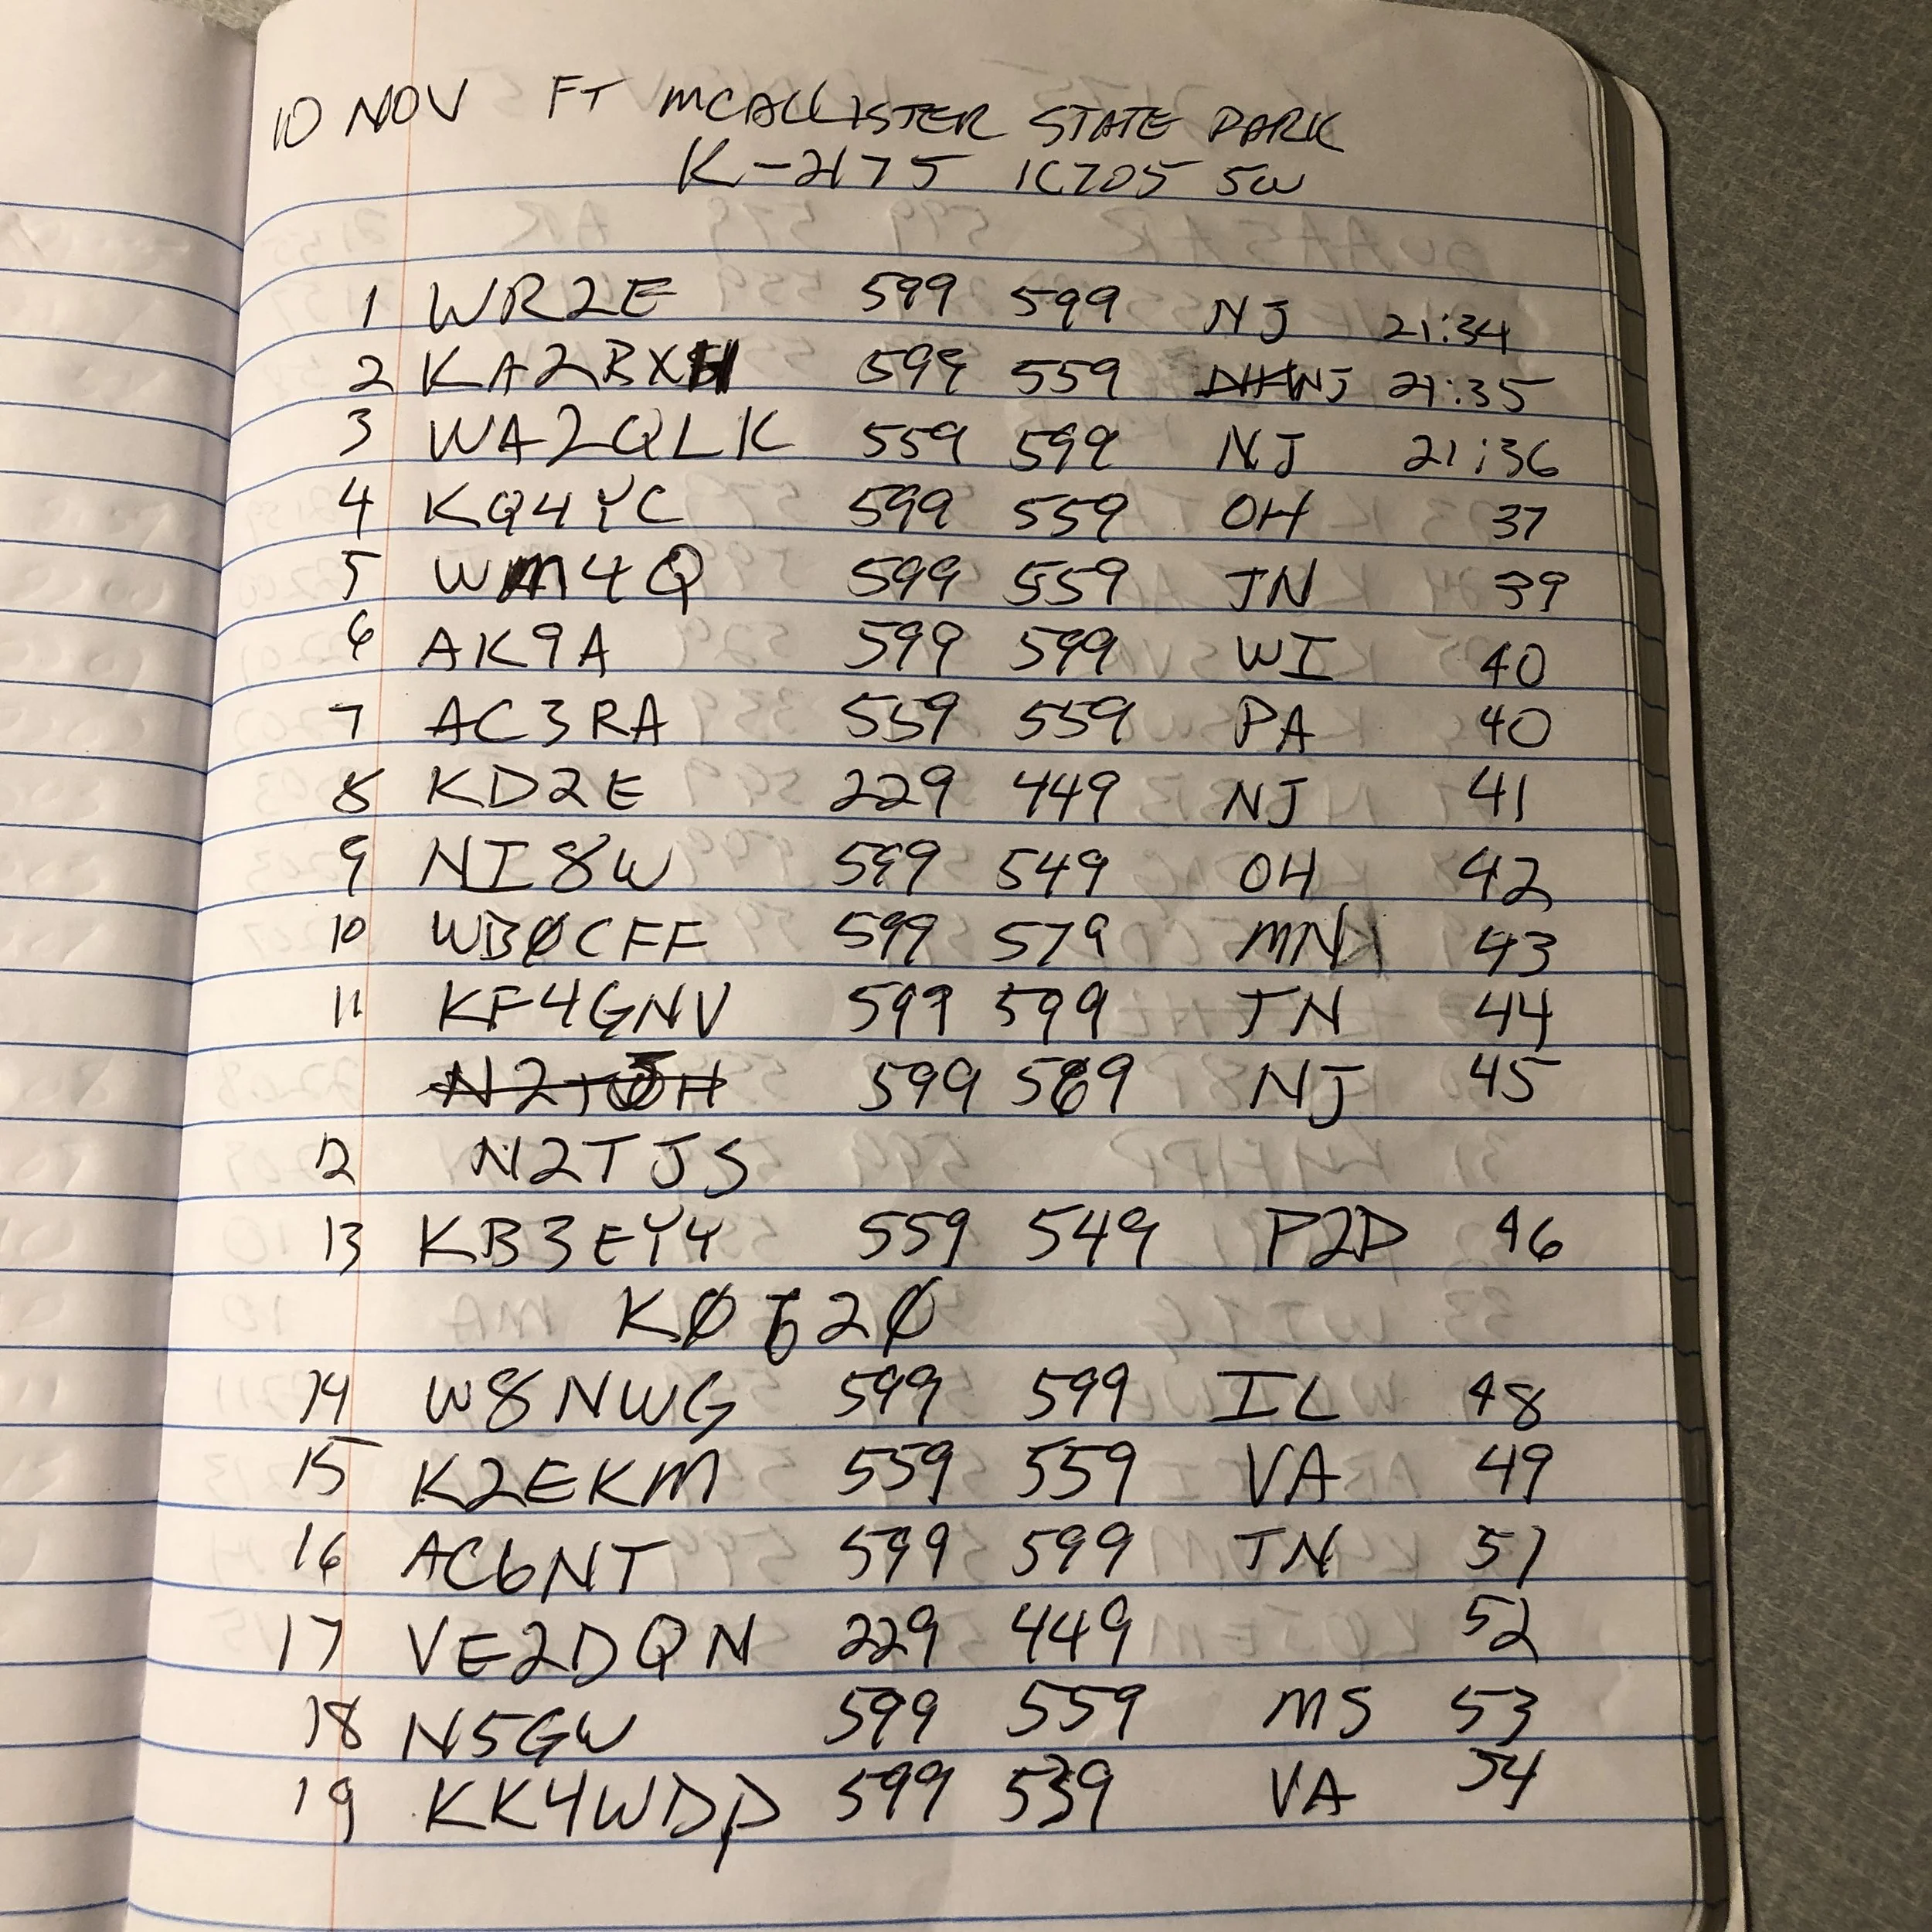 10 NOV FT MCALLISTER STATE PARK
K-2175 IC705 5W
1 WR2E 599 599 NJ 21:34
2 KA2BXH 599 559 NJ 21:35
3 WA2QLK 559 599 NJ 21:36
4 KQ4YC 599 559 OH 37
5 WM4Q 599 559 TN 39
6 AK9A 599 599 WI 40
7 AC3RA 559 559 PA 40
8 KD2E 229 449 NJ 41
9 NI8W 599 549 OH 42
10 WBØCFF 599 579 MN 43
11 KF4GNV 599 599 TN 44
599 569 NJ 45
12 N2TJS
13 KB3EYY 559 549 P2P 46
KØ620
14 W8NWG 599 599 IL 48
15 K2EKM 559 559 VA 49
16 AC6NT 599 599 TN 51
17 VE2DQN 229 449 52
18 N5GW 599 559 MS 53
19 KK4WDP 599 539 VA 54